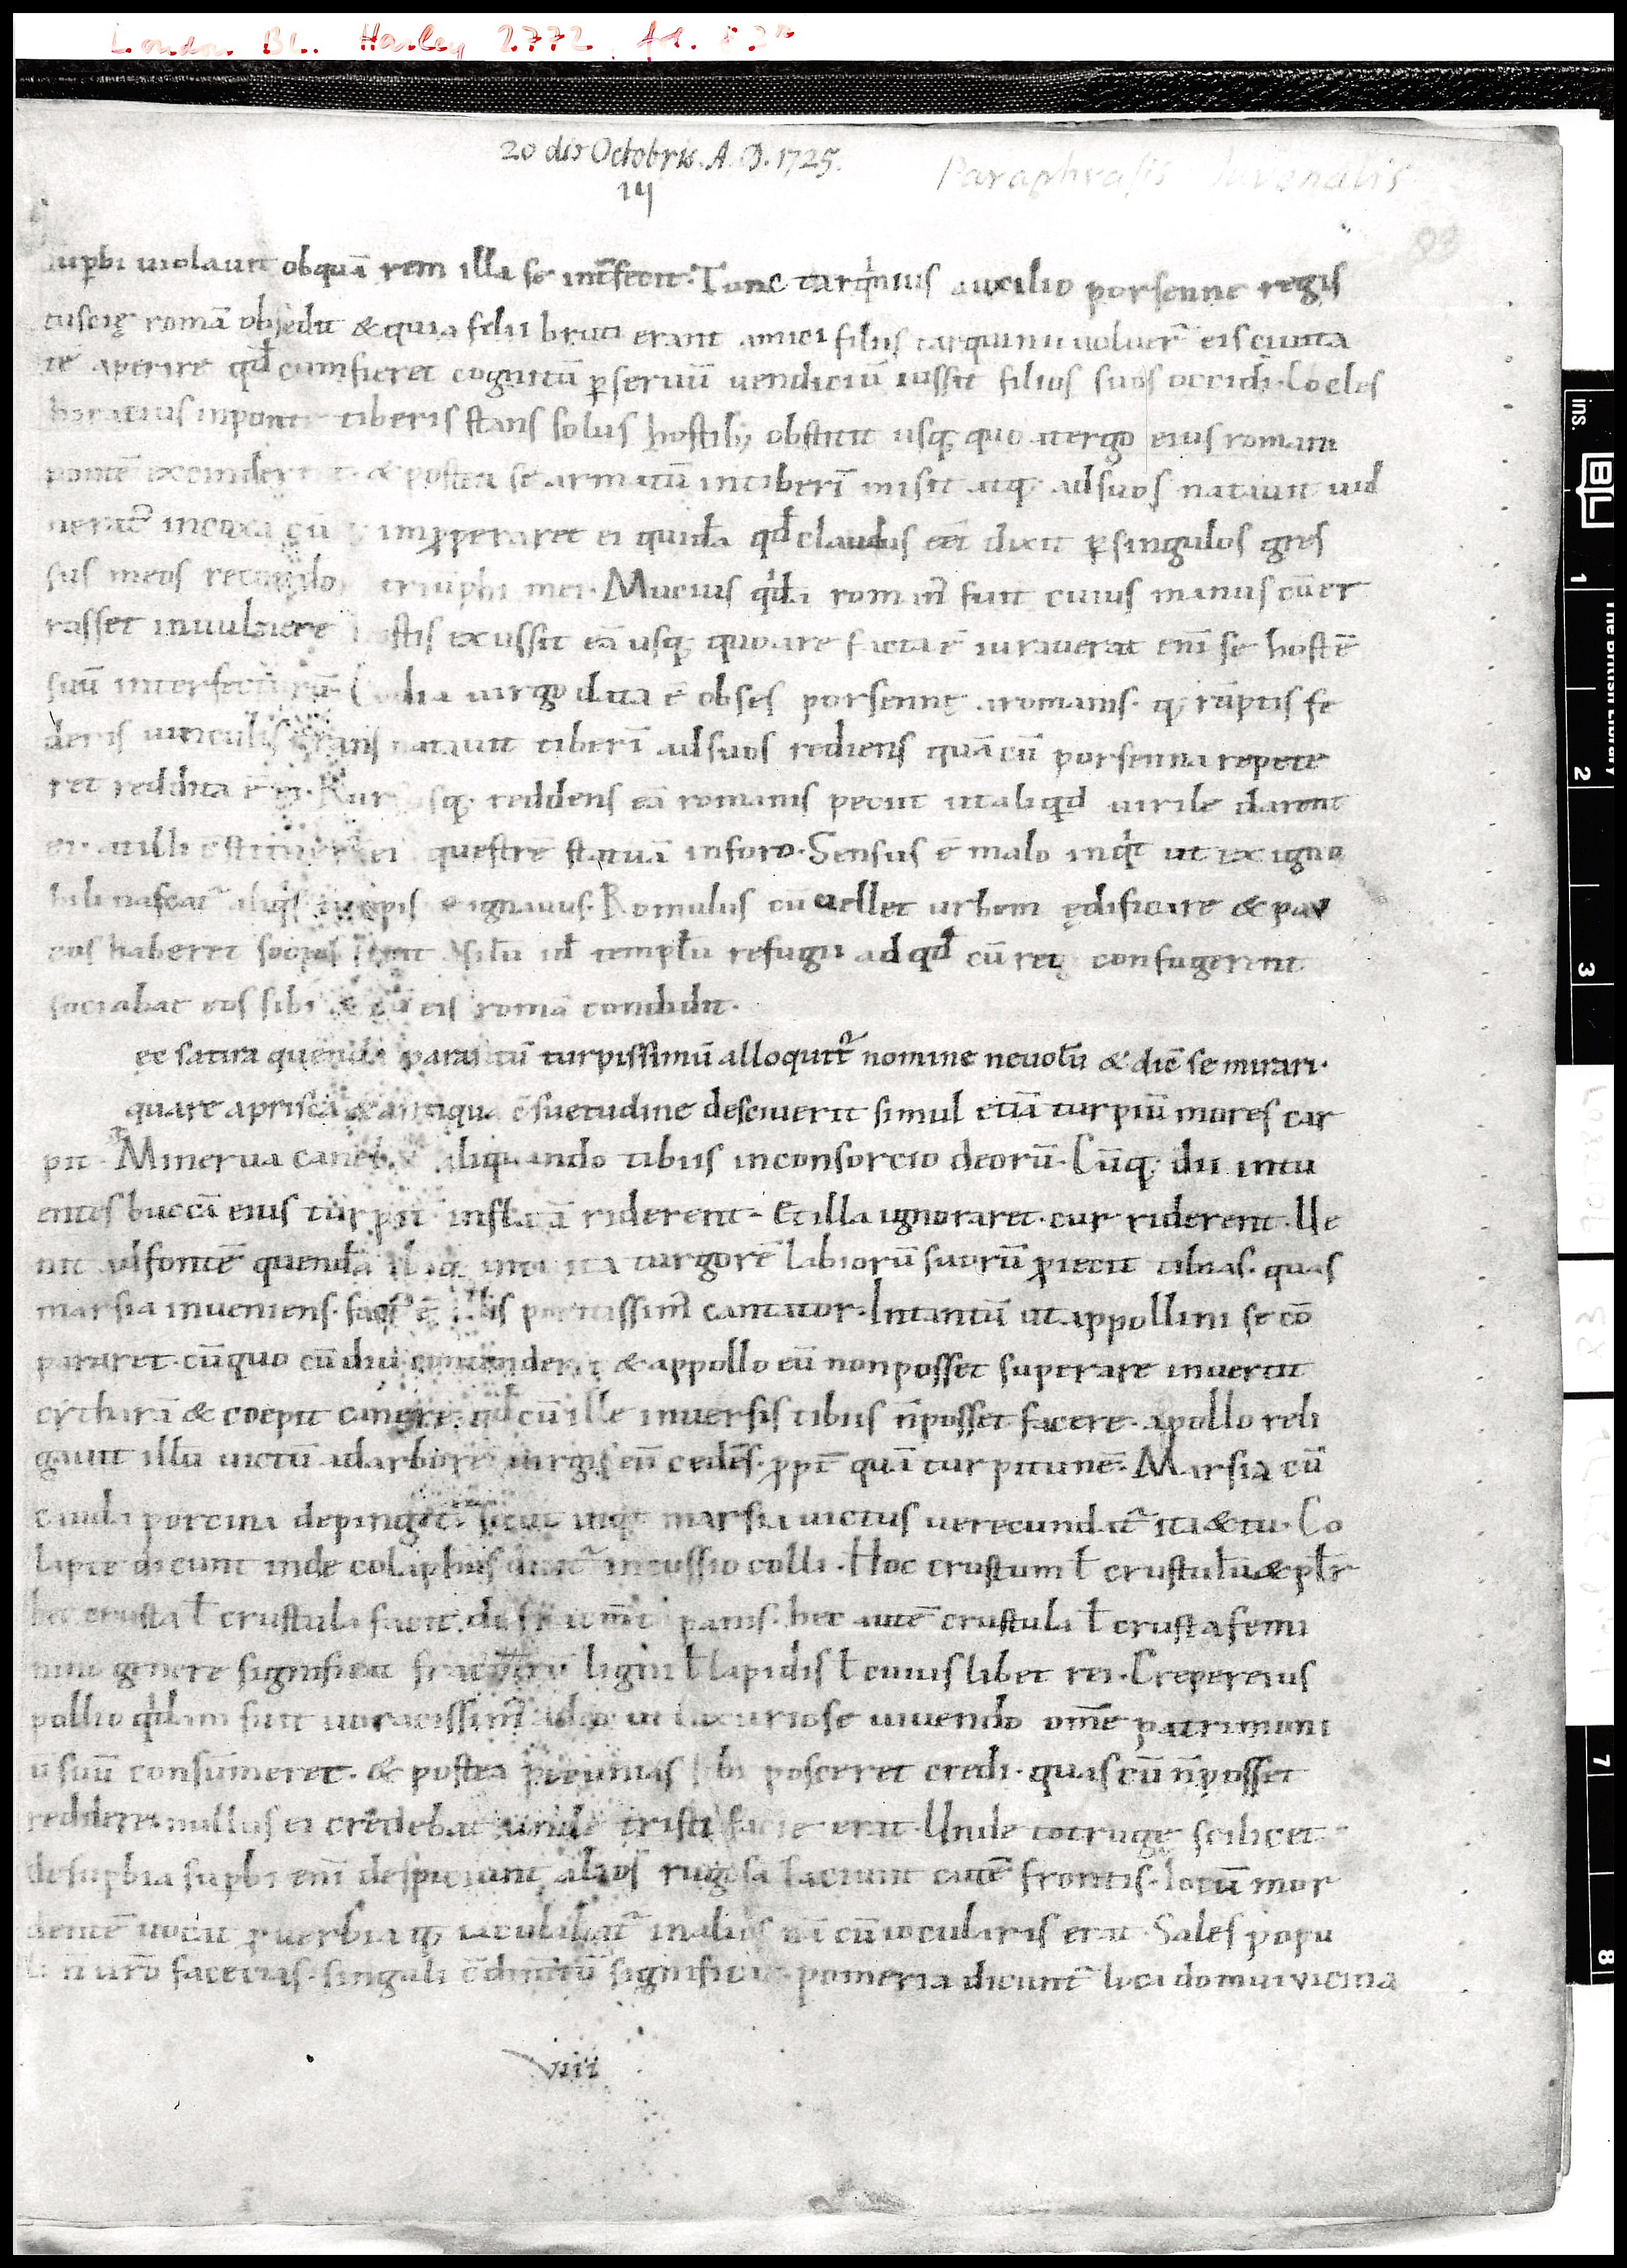 London. BL. Harley 2772, fol.
20 die Octobris. A. D. 1725.
14
Paraphrasis Juvenalis
sup̄bi uiolauit obquā rem illa se int̄fecit. Tunc tarqͥnius auxilio porsenne regis
tuscię romā obsedit & quia filii bruti erant amici filiis tarquinii uoluer̄ eis ciuita
tē aperire qd̄ cum fieret cognitū ꝑ seruū uendiciū iussit filios suos occidi. Cocles
horatius inponte tiberis stans solus hostibꝫ obstitit usqꝫ quo a tergo eius romani
pontē & postea se armatū intiberī misit atqꝫ adsuos natauit uul
nerat᷒ incoxa cū imꝓperaret ei quidā qd̄ claudus eēt dixit ꝑ singulos gres
sus meos triūphi mei. Mucius qͥdā roman᷒ fuit cuius manus cū er
rasset inuulnere hostis exussit eā usqꝫ quo are facta ē iurauerat enī se hostē
suū interfecturū. uirgo data ē obses porsennę a romanis. qꝫ rūptis fe
deris uinculis natauit tiberī ad suos rediens quā cū porsenna repete
ret reddita ē ei. reddens eā romanis petiit ut aliqͥd uirile darent
ei. at illi questrē statuā inforo. Sensus ē malo inqͥt ut ex igno
bili nascat᷒ aliqͥs & ignauus. Romulus cū uellet urbem ędificare & pau
cos haberet socios templū refugii ad qd̄ cū rei confugerent
sociabat eos sibi & cū eis romā condidit.
ec satira quendā parasitū turpissimū alloquit᷒ nomine neuolū & diē se mirari.
quare aprisca & antiqua c̄suetudine desciuerit simul etiā turpiū mores car
pit. Minerua aliquando tibiis inconsorcio deorū. Cūqꝫ dii intu
entes buccā eius turpit̄ inflatā riderent. Et illa ignoraret. cur riderent. Ue
nit adfontē quendā turgorē labiorū suorū ꝓiecit tibias. quas
marsia inueniens. cantator. Intantū ut appollini se cō
pararet. cūquo cū diu & appollo eū nonposset superare inuertit
cytharā & coepit canere. qd̄ cū ille inuersis tibiis n̄posset facere. apollo reli
gauit illū uictū adarborē uirgis eū cedēs. ꝓpt̄ quā turpitunē. Marsia cū
cauda porcina depingit᷒. sicut inqͥt marsia uictus uerecundat᷒ ita & tu. Co
lapte dicunt inde incussio colli. Hoc crustum ł crustulū & pl̄r
hec crusta ł crustula facit. panis. hec autē crustula ł crusta femi
nino genere significat ligni ł lapidis ł cuius libet rei. Crepereius
pollio qͥdam fuit uoracissim᷒ adeo ut luxuriose uiuendo om̄e patrimoni
ū suū consūmeret. & postea pecunias sibi posceret credi. quas cū n̄posset
reddere nullus ei credebat unde tristi facie erat. Unde tot rugę scilicet
de supbia supbi enī despiciunt alios rugosa faciunt cutē frontis. Iocū mor
dentē uocat ꝓuerbia qꝫ in alios nā cū iocularis erat. Sales popu
li n̄ urō facecias. singuli significat. pomeria dicunt᷒ loci domui vicina
viii
ins.
BL
The British Library
1
2
3
7
8